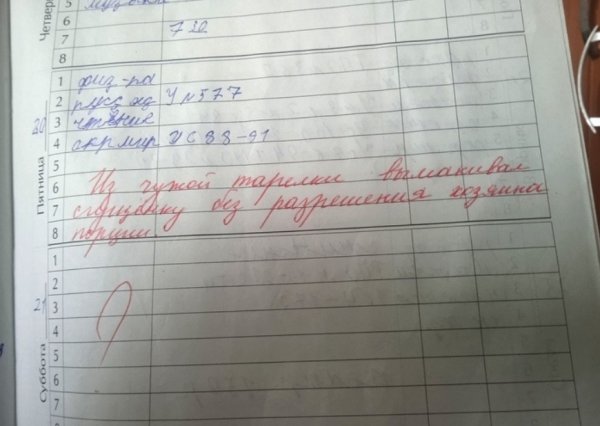 Четверг
5
6
7 7 20
8
20
Пятница
1 физ-ра
2 русс яз У №577
3 чтение
4 окр мир У С 88-91
5
6 Из чужой тарелки вымакивал
7 сгущёнку без разрешения хозяина
8 порции.
21
Суббота
1
2
3
4
5
6
7